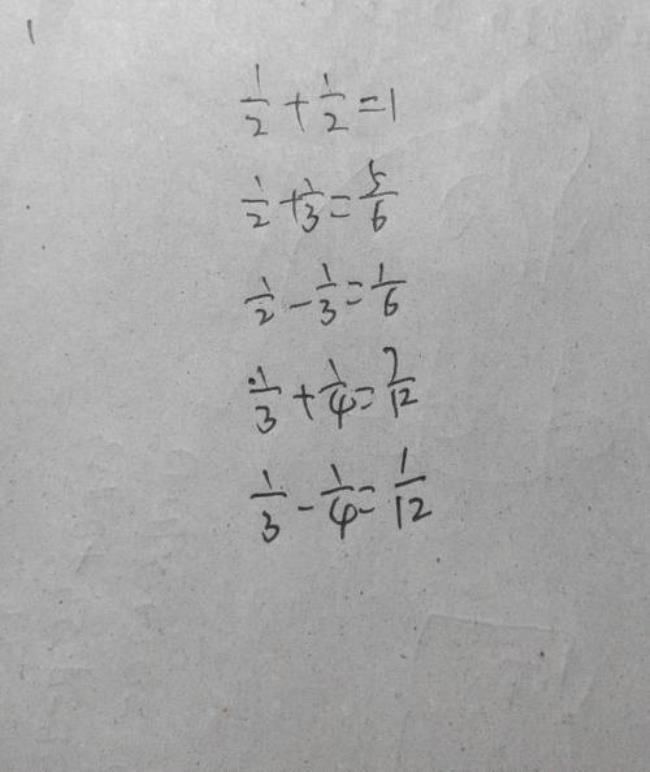 1/2 + 1/2 = 1
1/2 + 1/3 = 5/6
1/2 - 1/3 = 1/6
1/3 + 1/4 = 7/12
1/3 - 1/4 = 1/12